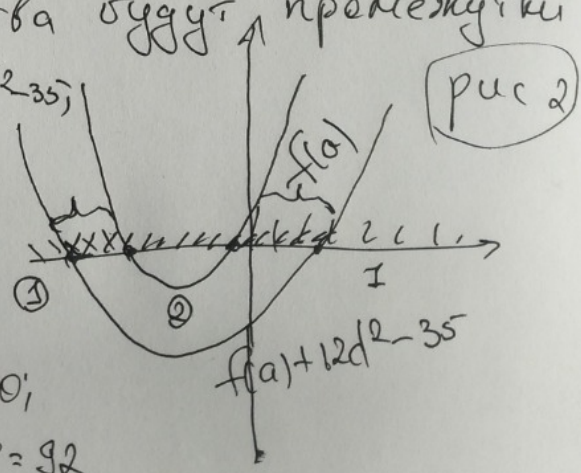 ва будут промежутки
²-35;
рис 2
f(a)
1
2
I
f(a)+12d²-35
0;
= 92